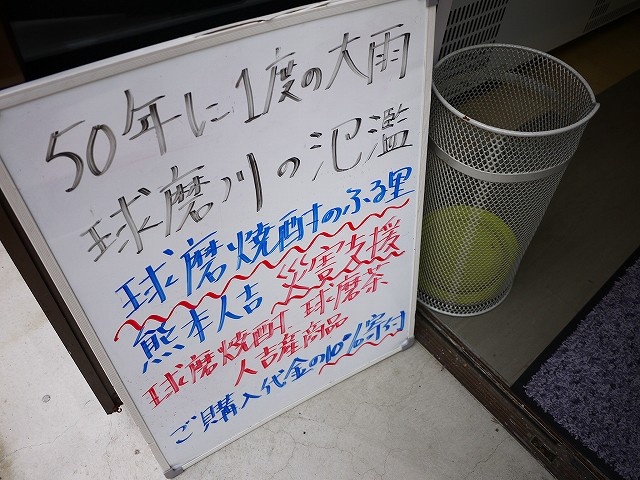 50年に1度の大雨
球磨川の氾濫
球磨焼酎のふる里
熊本人吉 災害支援
球磨焼酎 球磨茶
人吉産商品
ご購入代金の10%寄付